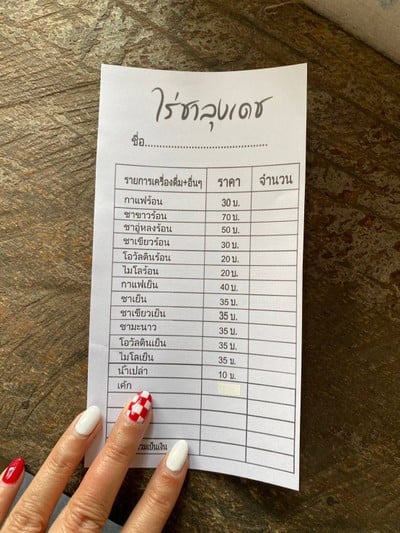 ไร่ชาลุงเดช
ชื่อ.......................................
รายการเครื่องดื่ม+อื่นๆ ราคา จำนวน
กาแฟร้อน 30 บ.
ชาขาวร้อน 70 บ.
ชาอู่หลงร้อน 50 บ.
ชาเขียวร้อน 30 บ.
โอวัลตินร้อน 20 บ.
ไมโลร้อน 20 บ.
กาแฟเย็น 40 บ.
ชาเย็น 35 บ.
ชาเขียวเย็น 35 บ.
ชามะนาว 35 บ.
โอวัลตินเย็น 35 บ.
ไมโลเย็น 35 บ.
น้ำเปล่า 10 บ.
เค้ก